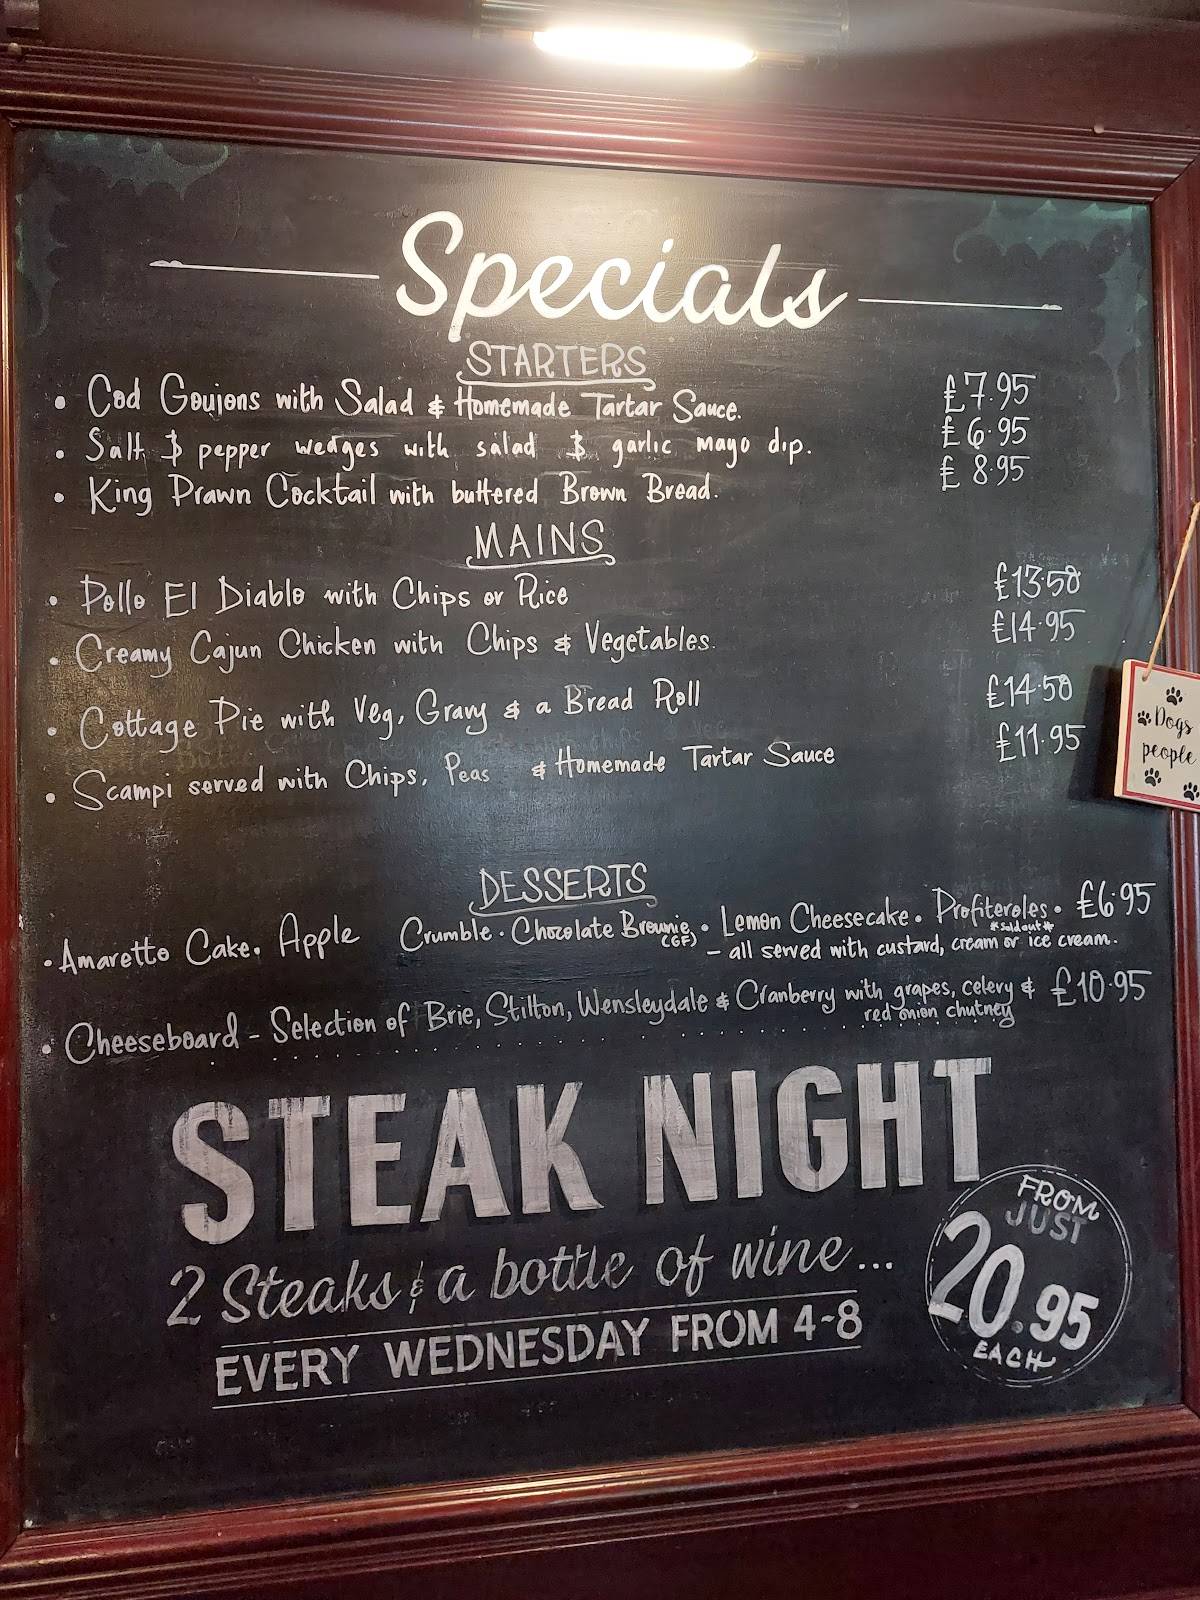 Specials
STARTERS
• Cod Goujons with Salad & Homemade Tartar Sauce. £7.95
• Salt & pepper wedges with salad & garlic mayo dip. £6.95
• King Prawn Cocktail with buttered Brown Bread. £8.95
MAINS
• Pollo El Diablo with Chips or Rice £13.50
• Creamy Cajun Chicken with Chips & Vegetables. £14.95
• Cottage Pie with Veg, Gravy & a Bread Roll £14.50
• Scampi served with Chips, Peas & Homemade Tartar Sauce £11.95
Dogs
people
DESSERTS
• Amaretto Cake. Apple Crumble. Chocolate Brownie (GF). Lemon Cheesecake. Profiteroles. £6.95
*Sold out*
– all served with custard, cream or ice cream.
• Cheeseboard - Selection of Brie, Stilton, Wensleydale & Cranberry with grapes, celery & £10.95
red onion chutney
STEAK NIGHT
2 Steaks & a bottle of wine...
EVERY WEDNESDAY FROM 4-8
FROM
JUST
20.95
EACH